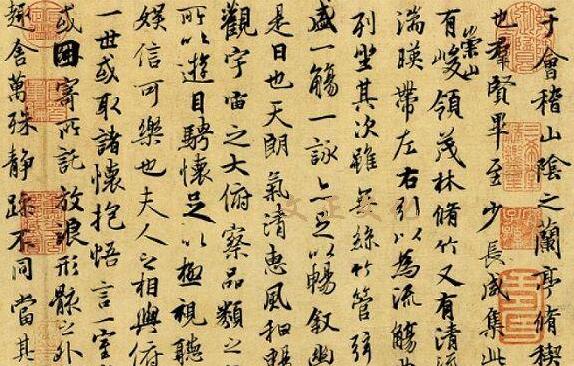 于會稽山陰之蘭亭脩稧
也羣賢畢至少長咸集此
有崇山峻領茂林脩竹又有清流
湍暎帶左右引以為流觴
列坐其次雖無絲竹管弦
盛一觴一詠亦足以暢叙幽
是日也天朗氣清惠風和暢
觀宇宙之大俯察品類之
所以遊目騁懷足以極視聽
娛信可樂也夫人之相與俯
一世或取諸懷抱悟言一室
或因寄所託放浪形骸之外
趣舍萬殊静躁不同當其